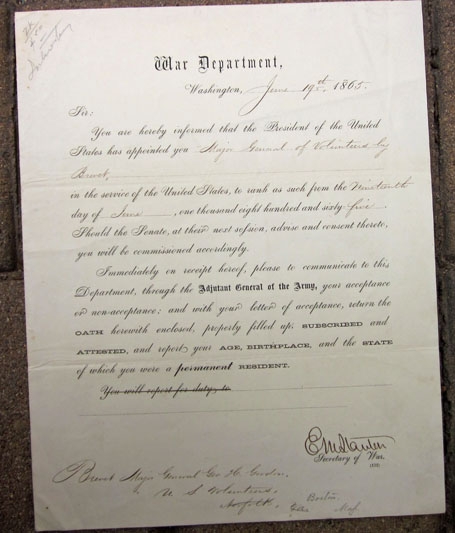 War Department,
Washington, June 19th 1865.
Sir:
You are hereby informed that the President of the United
States has appointed you Major General of Volunteers by
Brevet,
in the service of the United States, to rank as such from the Nineteenth
day of June, one thousand eight hundred and sixty-five.
Should the Senate, at their next session, advise and consent thereto,
you will be commissioned accordingly.
Immediately on receipt hereof, please to communicate to this
Department, through the Adjutant General of the Army, your acceptance
or non-acceptance; and with your letter of acceptance, return the
OATH herewith enclosed, properly filled up, SUBSCRIBED and
ATTESTED, and report your AGE, BIRTHPLACE, and the STATE
of which you were a permanent RESIDENT.
You will report for duty, to
Secretary of War.
Brevet Major General Geo H. Gordon.
U S Volunteers,
Norfolk.
Boston